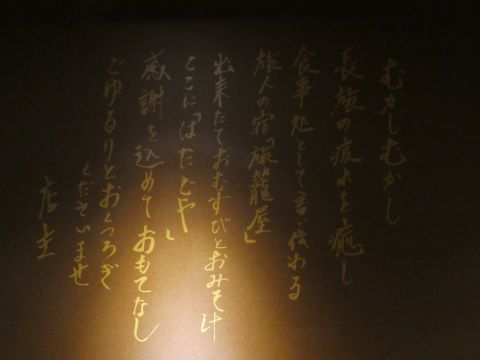 むかしむかし
長旅の疲れを癒し
食事処として言い伝わる
旅人の宿「旅籠屋」
出来たておむすびとおみそ汁
ここに「はたごや」
感謝を込めておもてなし
ごゆるりとおくつろぎ
くださいませ
店主